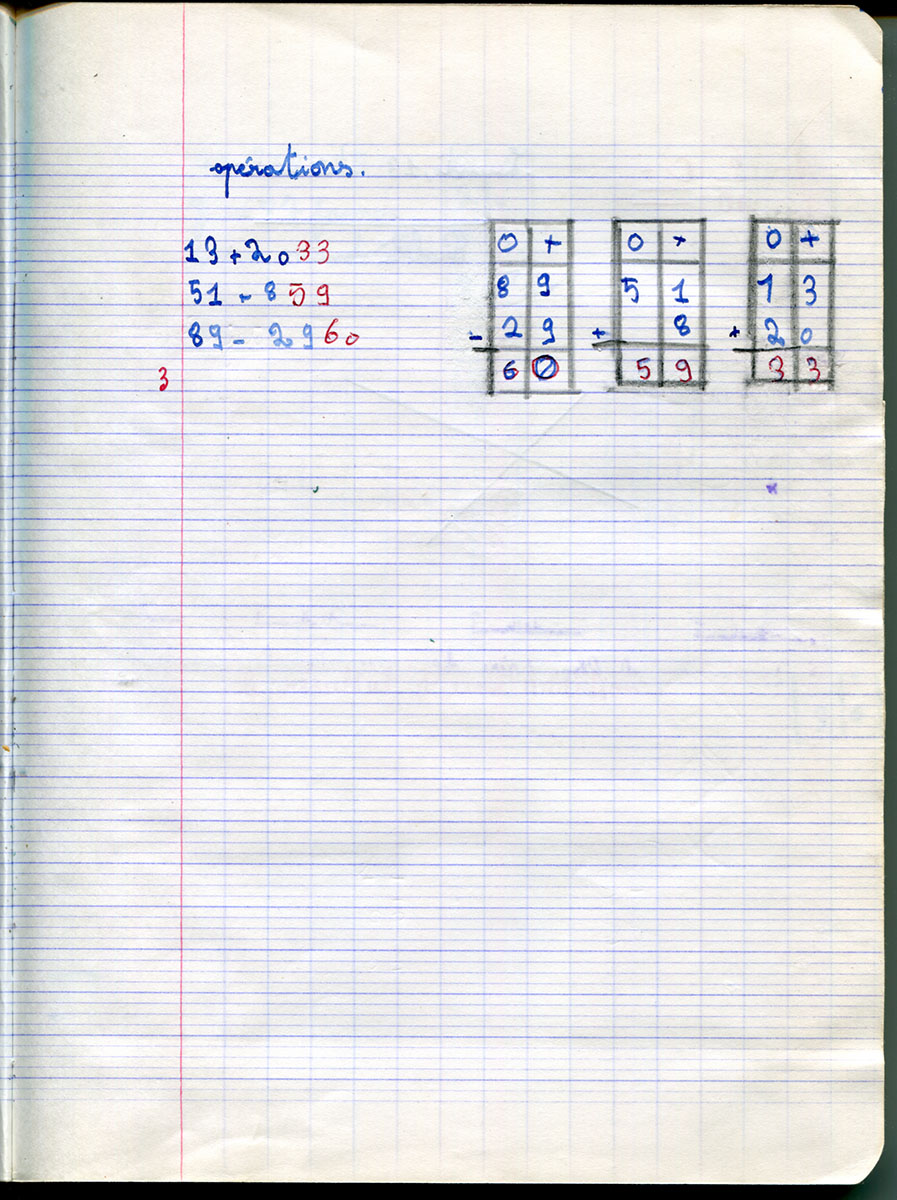 opérations.
13 + 20 33
51 - 8 59
89 - 29 60
3
0 +
89
- 29
60
0 +
51
+ 8
59
0 +
13
+ 20
33